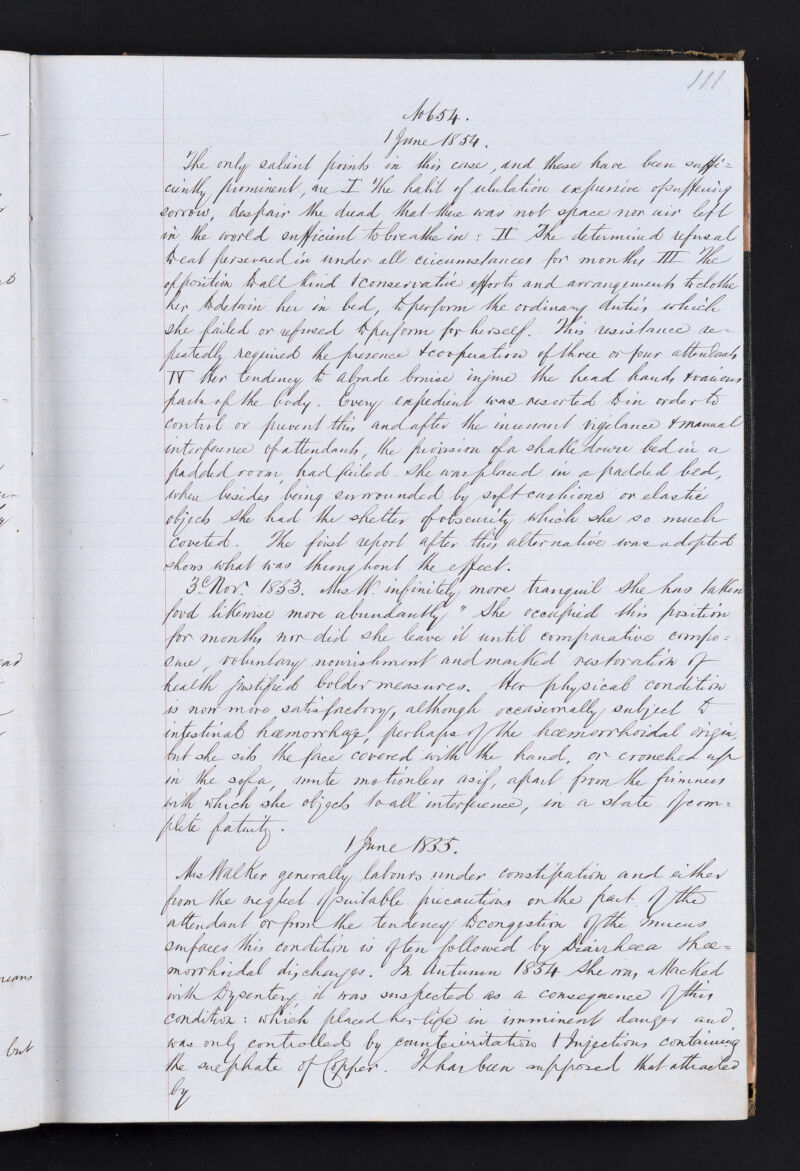 111
No 654.
1 June 1854.
The only salient points in this case, and these have been suffi=
ciently prominent, are I The habit of ululation expressive of suffering
sorrow, despair the dread that there was not space nor air left
in the world sufficient to breathe in : II The determined refusal
to eat persevered in under all circumstances for months III The
opposition to all kind & conservative efforts and arrangements to clothe
her to detain her in bed, to perform the ordinary duties which
she failed or refused to perform for herself. This resistance re=
peatedly required the presence & cooperation of three or four attendants
IV Her tendency to abrade bruise injure the head hands & various
parts of the body. Every expedient was resorted to in order to
control or prevent this and after the incessant vigilance & manual
interference of attendants, the provision of a shake down bed in a
padded room, had failed she was placed in a padded bed,
where besides being surrounded by soft cushions or elastic
objects she had the shelter of obscurity which she so much
coveted. The first report after this alternative was adopted
shows what was throughout the effect.
3d Nov. 1853. Mrs W. infinitely more tranquil she has taken
food likewise more abundantly " She occupied this position
for months nor did she leave it until comparative compo=
sure, voluntary nourishment and marked restoration of
health justified bolder measures. Her physical condition
is now more satisfactory, although occasionally subject to
intestinal hæmorrhage, perhaps of the hæmorrhoidal origin,
but she sits the face covered with the hand, or crouched up
in the sofa, mute motionless as if, apart from the firmness
with which she objects to all interference, in a state of com=
plete fatuity.
1 June 1855.
Mrs Walker generally labours under constipation and either
from the neglect of suitable precautions on the part of the
attendant or from the tendency to congestion of the mucus
surfaces this condition is often followed by Diarrhœa & hœ=
morrhoidal discharges. In Autumn 1854 she was attacked
with Dysentery, it was suspected as a consequence of this
condition : which placed her life in imminent danger and
was only controlled by counterirritation & Injections containing
the sulphate of Copper. It has been supposed that attracted
by